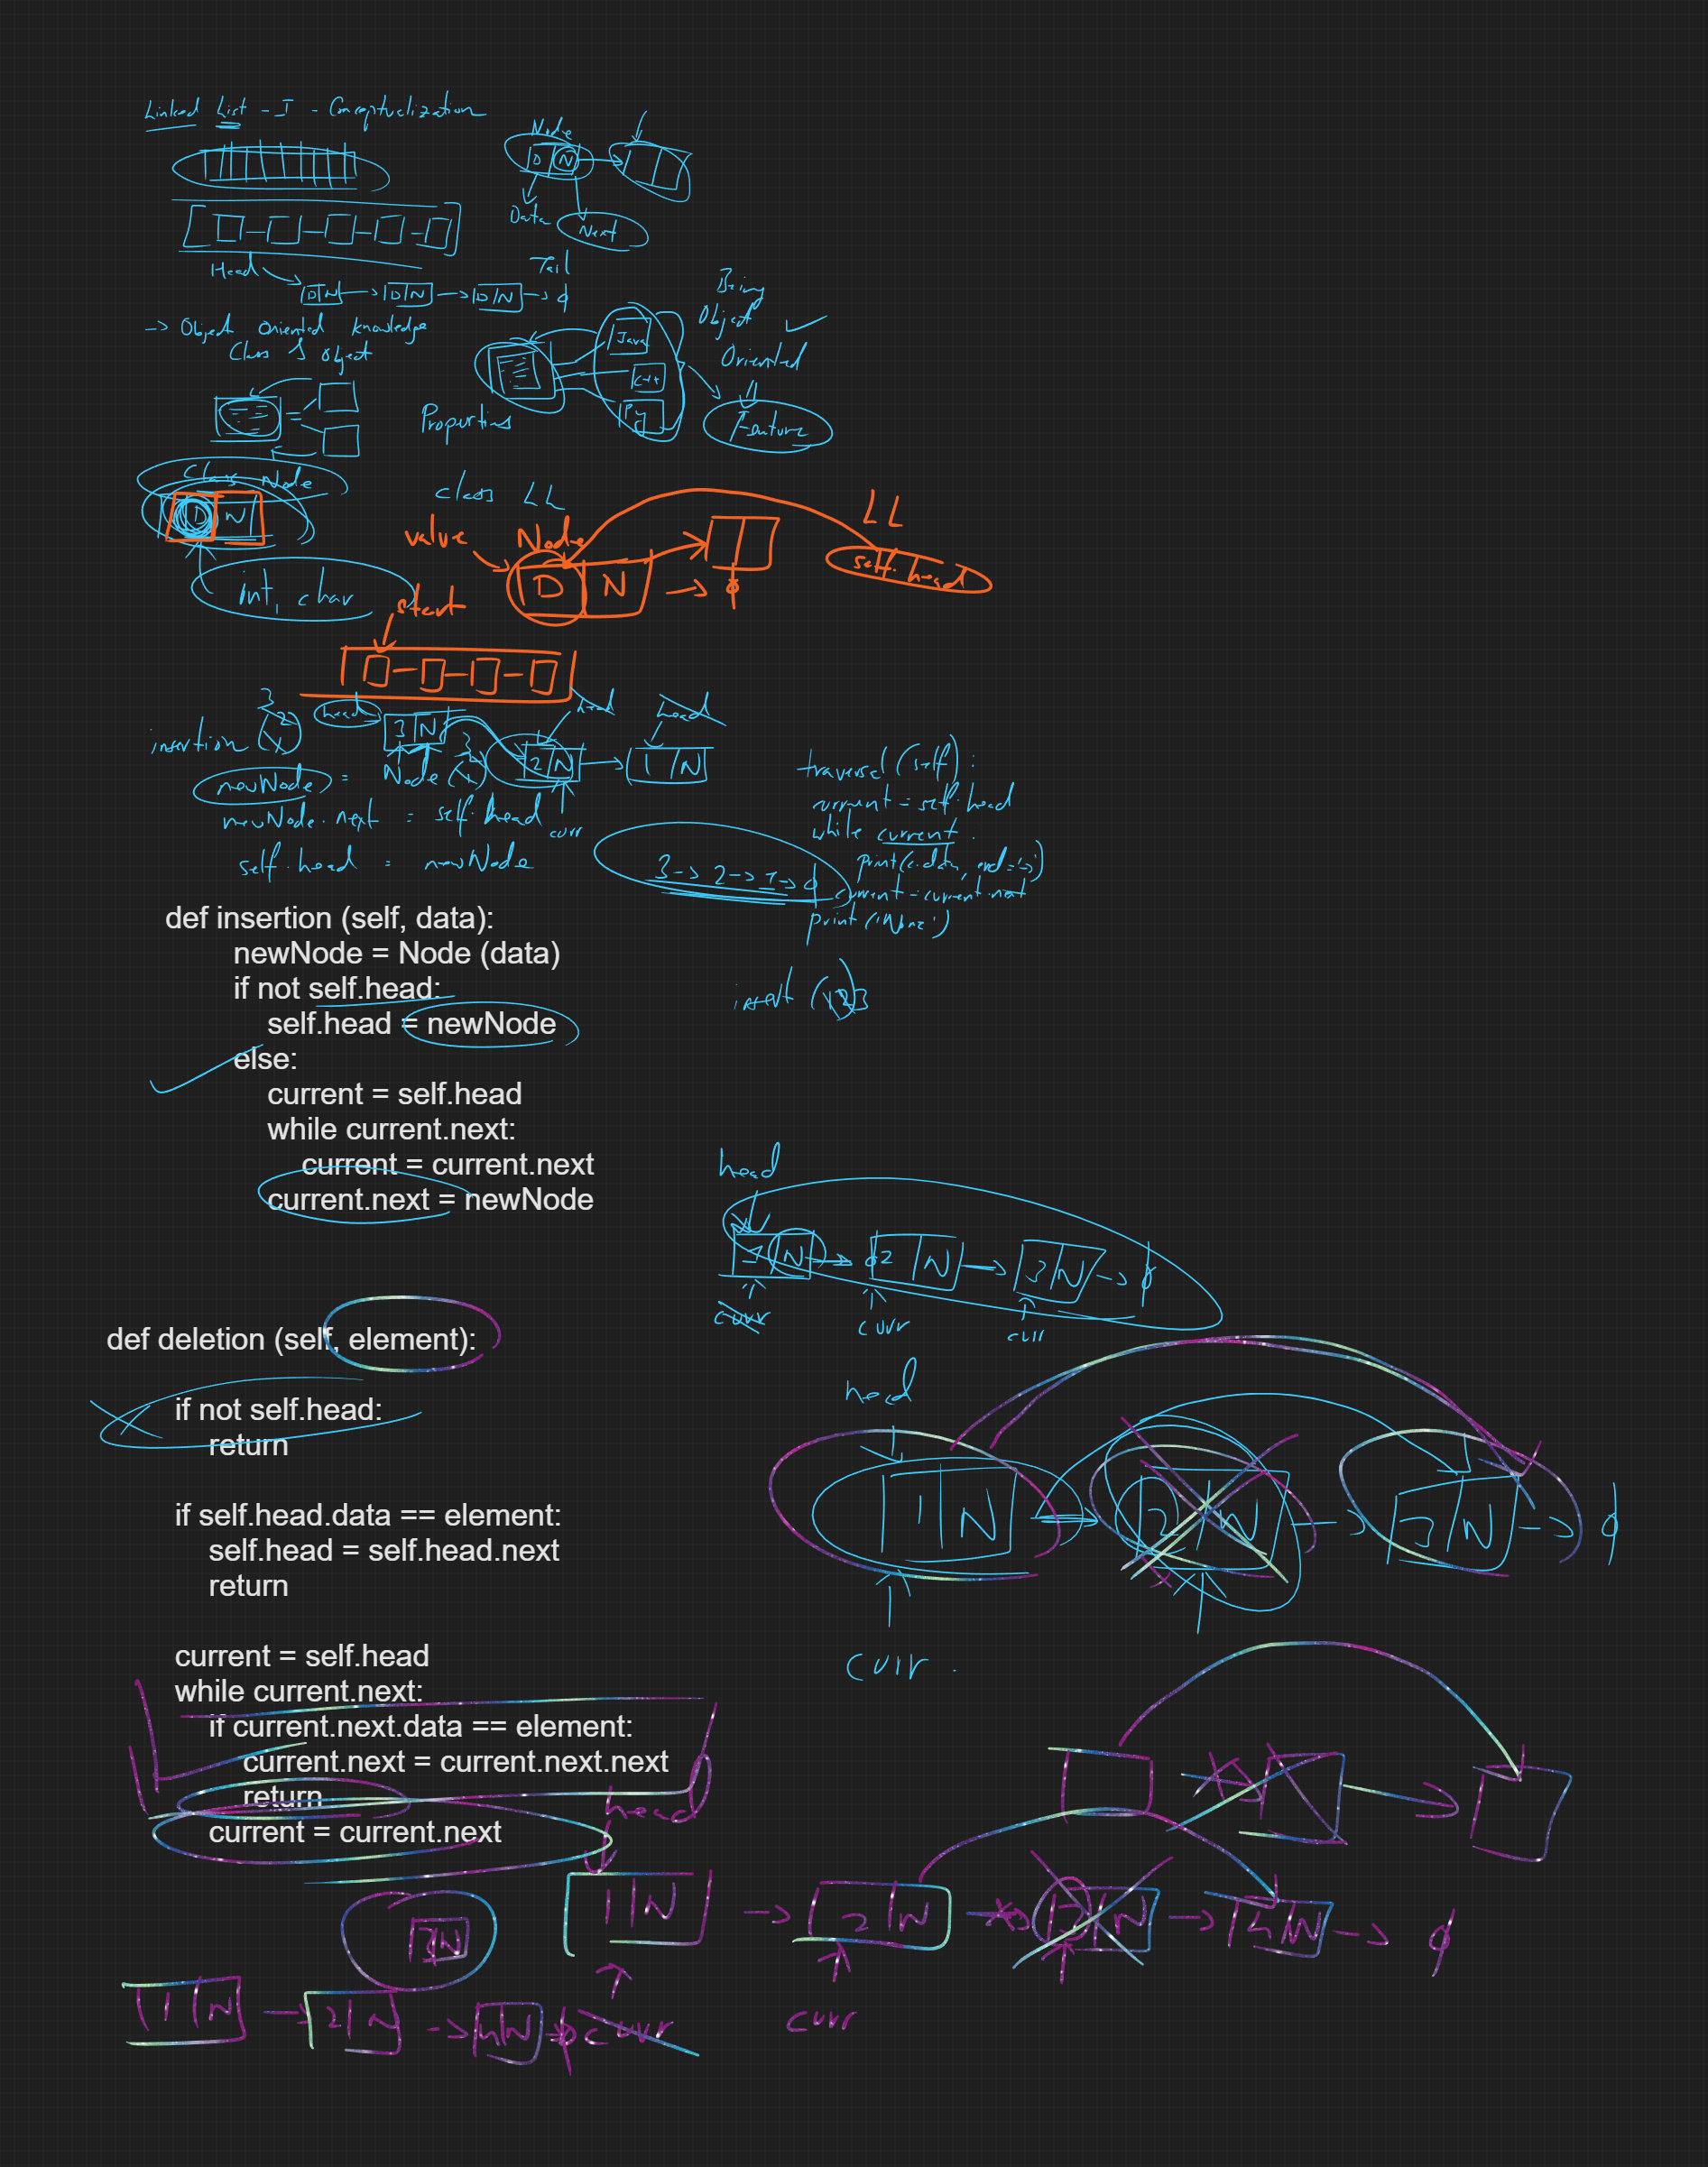 Linked List - I - Conceptualization
Node
D N
Data
Next
Head
Tail
D|N -> D|N -> D|N -> ϕ
-> Object Oriented knowledge
Class & object
Being
Object
Oriented
Feature
Java
C++
Py
Properties
Class Node
D N
int, char
class LL
value
Node
D N -> ϕ
LL
self.head
start
insertion (1) 2 3
head
3|N
head
2|N
head
1|N
newNode = Node (1) 2 3
newNode.next = self.head
curr
self.head = newNode
3 -> 2 -> 1 -> ϕ
traversal (self):
current = self.head
while current:
print(c.data, end='->')
current = current.next
print('None')
insert (1) 2 3
def insertion (self, data):
newNode = Node (data)
if not self.head:
self.head = newNode
else:
current = self.head
while current.next:
current = current.next
current.next = newNode
head
1|N -> 2|N -> 3|N -> ϕ
curr
curr
curr
def deletion (self, element):
if not self.head:
return
if self.head.data == element:
self.head = self.head.next
return
current = self.head
while current.next:
if current.next.data == element:
current.next = current.next.next
return
current = current.next
head
1|N -> 2|N -> 3|N -> ϕ
curr
head
1|N -> 2|N -> 3|N -> 4|N -> ϕ
curr
curr
3|N
1|N -> 2|N -> 4|N -> ϕ